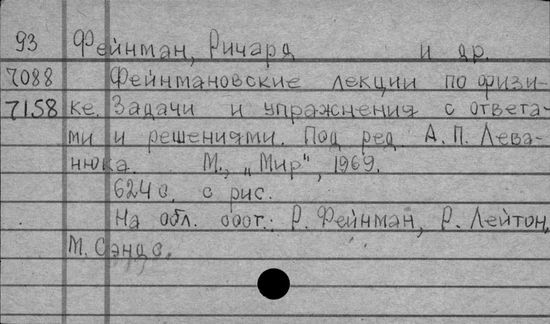 93 Фейнман, Ричард и др.
7088 Фейнмановские лекции по физи-
7158 ке. Задачи и упражнения с ответа-
ми и решениями. Под ред. А.П. Лева-
нюка. М., „Мир", 1969.
624 с. с рис.
На обл. авт.: Р. Фейнман, Р. Лейтон,
М. Сэндс.